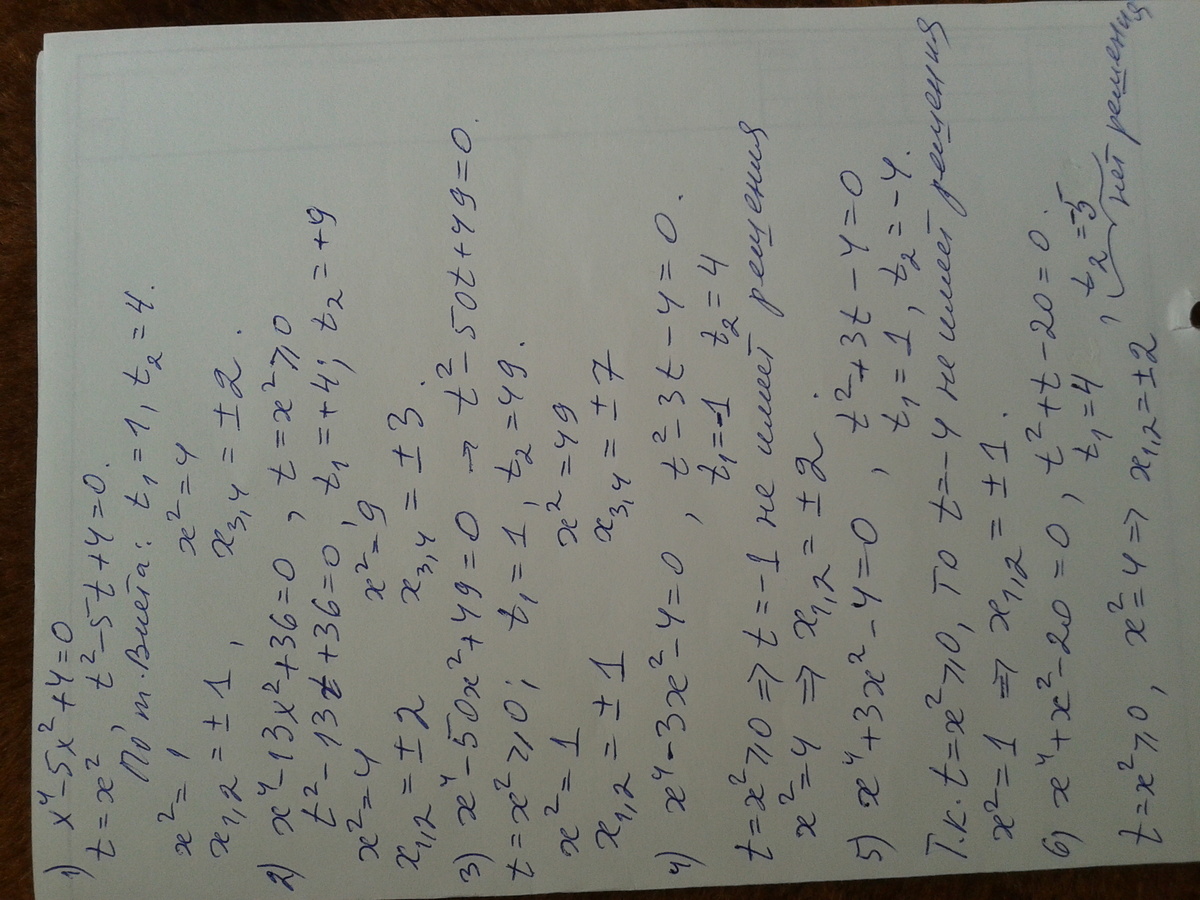 1) x⁴-5x²+4=0
t=x², t²-5t+4=0.
По т. Виета: t₁=1, t₂=4.
x²=1 x²=4
x₁,₂=±1, x₃,₄=±2.
2) x⁴-13x²+36=0, t=x²⩾0
t²-13t+36=0, t₁=+4; t₂=+9
x²=4 x²=9
x₁,₂=±2 x₃,₄=±3.
3) x⁴-50x²+49=0 → t²-50t+49=0.
t=x²⩾0; t₁=1, t₂=49.
x²=1 x²=49
x₁,₂=±1 x₃,₄=±7
4) x⁴-3x²-4=0, t²-3t-4=0.
t₁=-1 t₂=4
t=x²⩾0 => t=-1 не имеет решения
x²=4 => x₁,₂=±2.
5) x⁴+3x²-4=0, t²+3t-4=0
t₁=1, t₂=-4.
Т.к. t=x²⩾0, то t=-4 не имеет решения
x²=1 => x₁,₂=±1.
6) x⁴+x²-20=0, t²+t-20=0.
t₁=4, t₂=-5
нет решения
t=x²⩾0, x²=4 => x₁,₂=±2